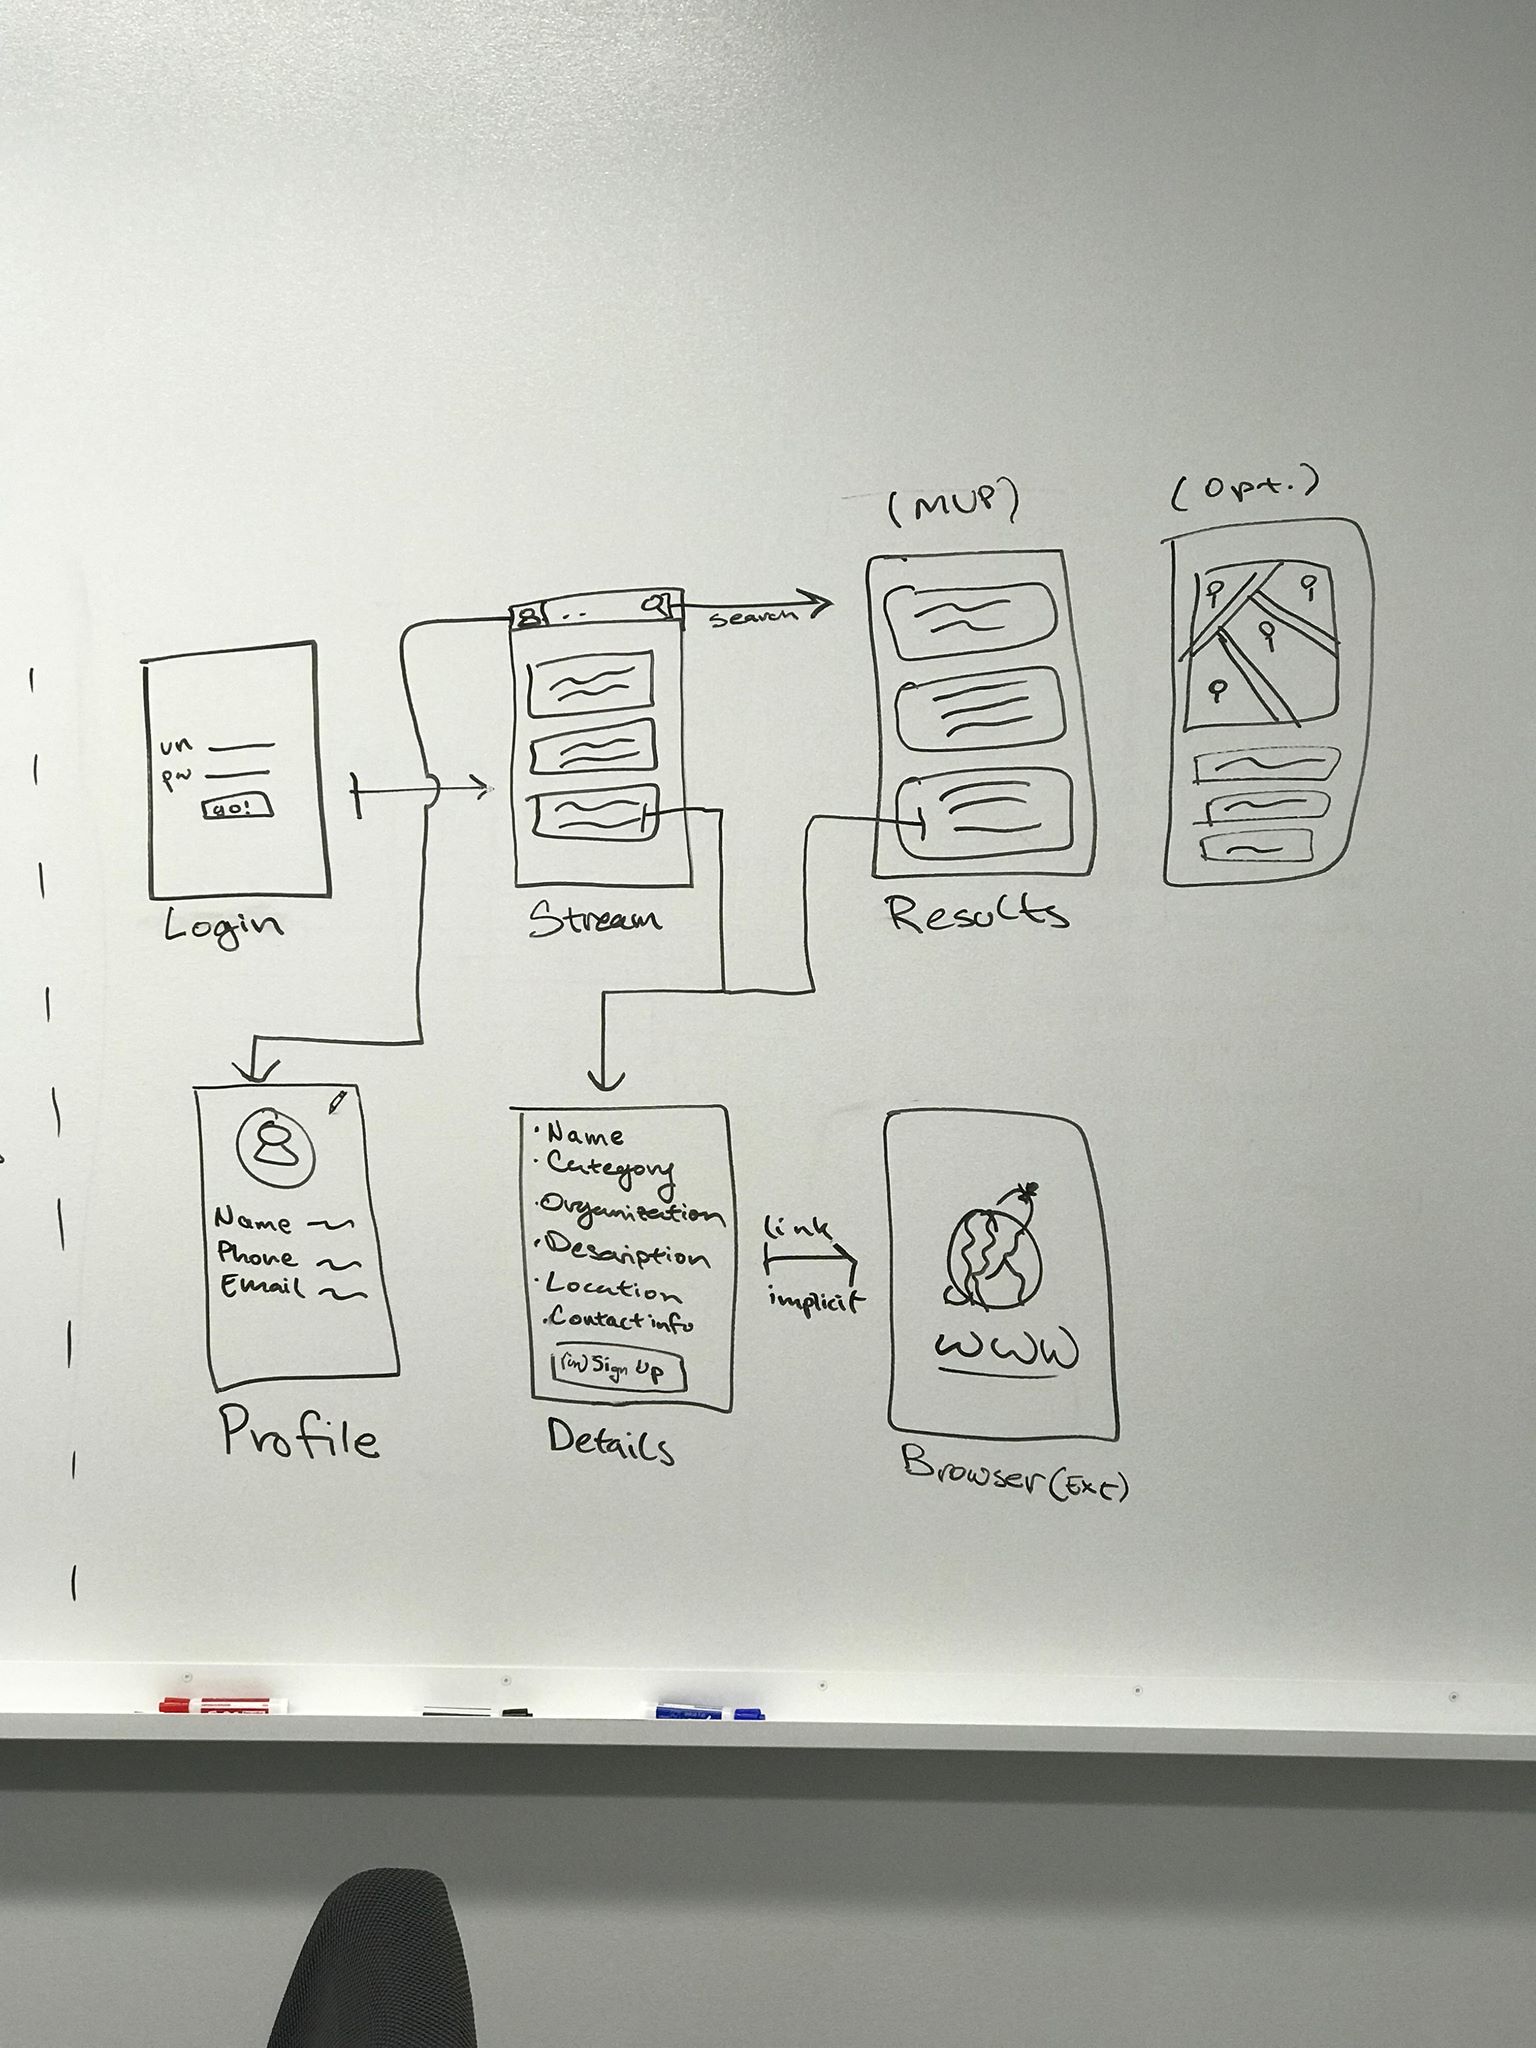 (MVP)
(Opt.)
search
un
pw
go!
Login
Stream
Results
Name
Phone
Email
Profile
· Name
· Category
· Organization
· Description
· Location
· Contact info
Sign Up
Details
link
implicit
WWW
Browser (Ext)